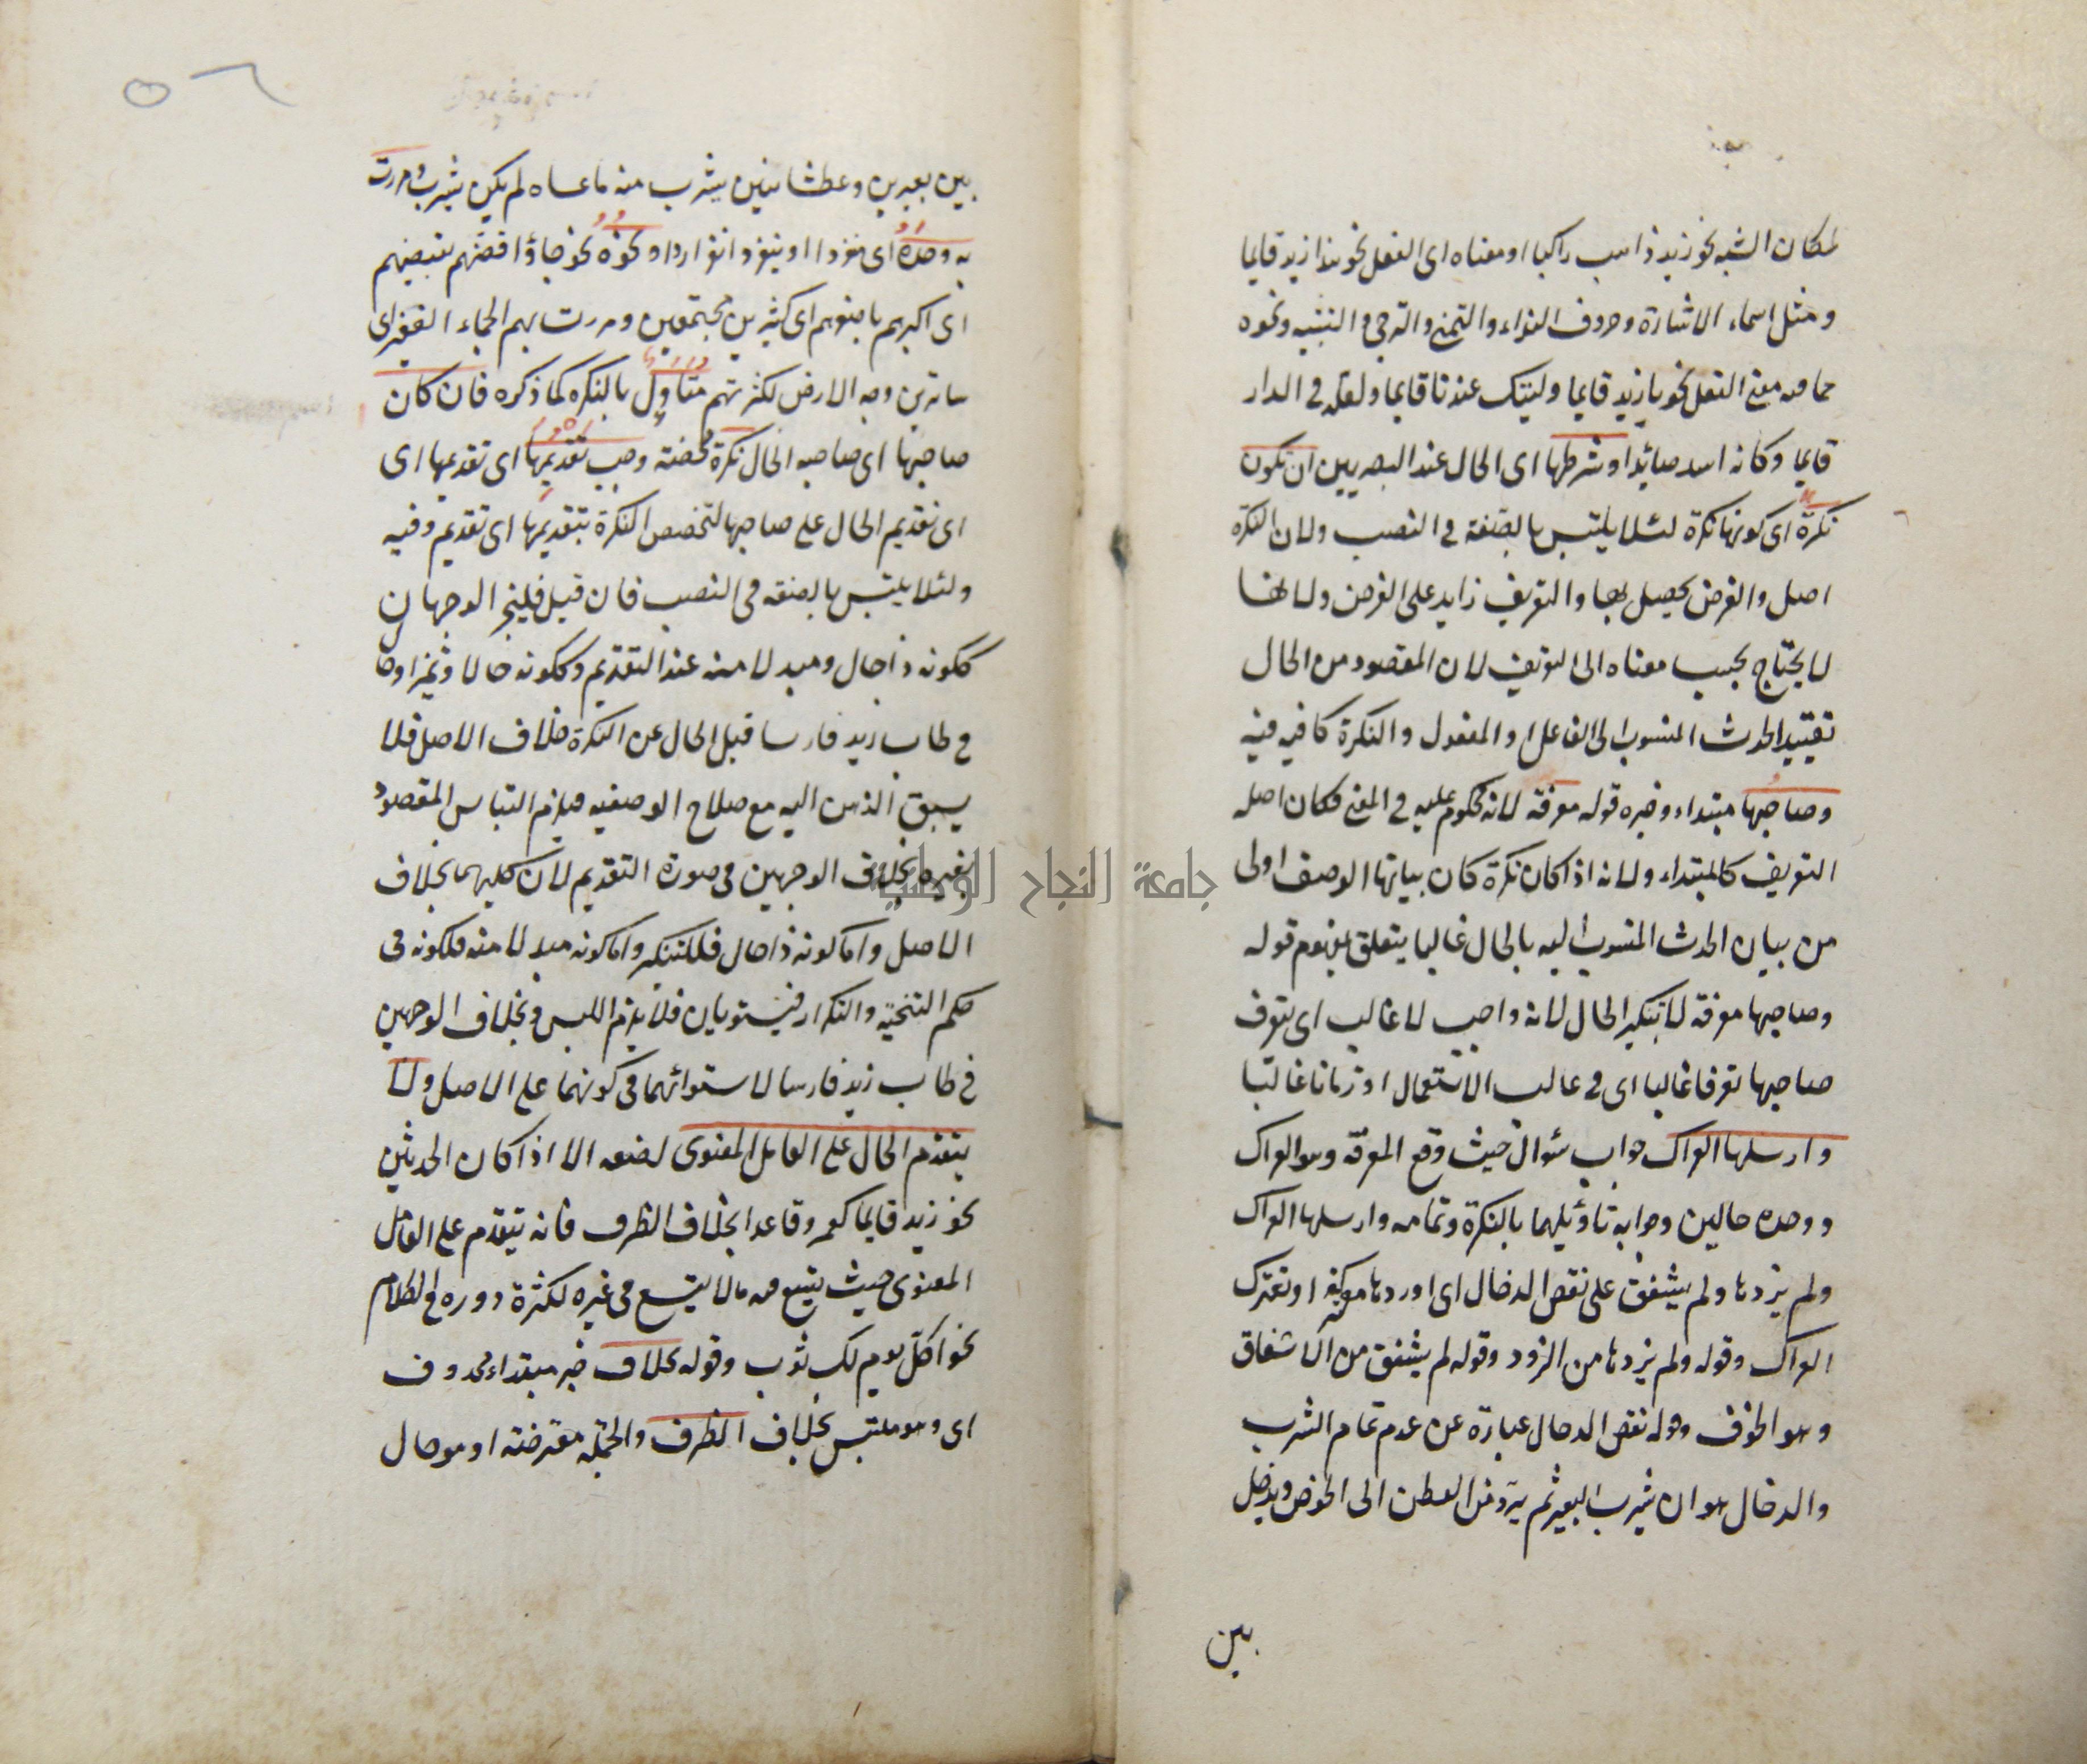 لمكان الشبه نحو زيد ذاهب راكبا او معناه اى الفعل نحو هذا زيد قايما
ومثل اسماء الاشارة وحروف النداء والتمنى والترجى والتنبيه ونحوه
مما فيه معنى الفعل نحو يا زيد قايما وليتك عندنا قايما ولعله فى الدار
قايما وكانه اسد صائدا وشرطها اى الحال عند البصريين ان تكون
نكرة اى كونها نكرة لئلا يلتبس بالصفة فى النصب ولان النكرة
اصل والغرض يحصل بها والتعريف زايد على الغرض ولانها
لا يحتاج بحسب معناه الى التعريف لان المقصود من الحال
تقييد الحدث المنسوب الى الفاعل او المفعول والنكرة كافية فيه
وصاحبها مبتداء وخبره قوله معرفة لانه محكوم عليه فى المعنى فكان اصله
التعريف كالمبتداء ولانه اذا كان نكرة كان بيانها الوصف اولى
من بيان الحدث المنسوب اليه بالحال غالبا يتعلق بمفهوم قوله
وصاحبها معرفة لا بتنكير الحال لانه واجب لا غالب اى يتعرف
صاحبها تعرفا غالبا اى فى غالب الاستعمال او زمانا غالبا
وارسلها العراك جواب سئوال حيث وقع المعرفة وهو العراك
ووحده حالين وجوابه تاؤيلهما بالنكرة وتمامه وارسلها العراك
ولم يزدها ولم يشفق على نقص الدخال اى اوردها معركة او تعترك
العراك وقوله ولم يزدها من الزود وقوله لم يشفق من الاشفاق
وهو الخوف وقوله نقص الدخال عبارة عن عدم تمام الشرب
والدخال هو ان يشرب البعير ثم يرد من العطن الى الحوض ويدخل
بين
٥٦
بين بعيرين وعطشانين يشرب منه ما عساه لم يكن يشرب ومررت
به وحده اى منفردا او ينفرد انفرادا ونحوه نحو جاؤا قضهم بقضيضهم
اى اكبرهم باصغرهم اى كثيرين مجتمعين ومررت بهم الجماء الغفير اى
ساترين وجه الارض لكثرتهم متاول بالنكرة كما ذكره فان كان
صاحبها اى صاحب الحال نكرة محضة وجب تقديمها اى تقديمها اى
اى تقديم الحال على صاحبها لتخصص النكرة بتقديمها اى تقديم وفيه
ولئلا يلتبس بالصفة فى النصب فان قيل فليجز الوجهان
ككونه ذا حال ومبدلا منه عند التقديم وككونه حالا وتميزا وحا
فى طاب زيد فارسا قيل الحال عن النكرة خلاف الاصل فلا
يسبق الذهن اليه مع صلاح الوصفية فيلزم التباس المقصود
بغيره بخلاف الوجهين فى صورة التقديم لان كليهما بخلاف
الاصل واما كونه ذا حال فللتنكير واما كونه مبدلا منه فلكونه فى
حكم التنحية والتكرار فيستويان فلا يلزم اللبس وبخلاف الوجهين
فى طاب زيد فارسا لاستوائهما فى كونهما على الاصل ولا
يتقدم الحال على العامل المعنوى لضعفه الا اذا كان الحدثين
نحو زيد قايما كعمرو قاعدا بخلاف الظرف فانه يتقدم على العامل
المعنوى حيث يتسع فيه ما لا يتسع فى غيره لكثرة دوره فى الكلام
نحو اكل يوم لك ثوب وقوله بخلاف خبر مبتداء محذوف
اى وهو ملتبس بخلاف الظرف والجملة معترضة او هو حال
جامعة النجاح الوطنية